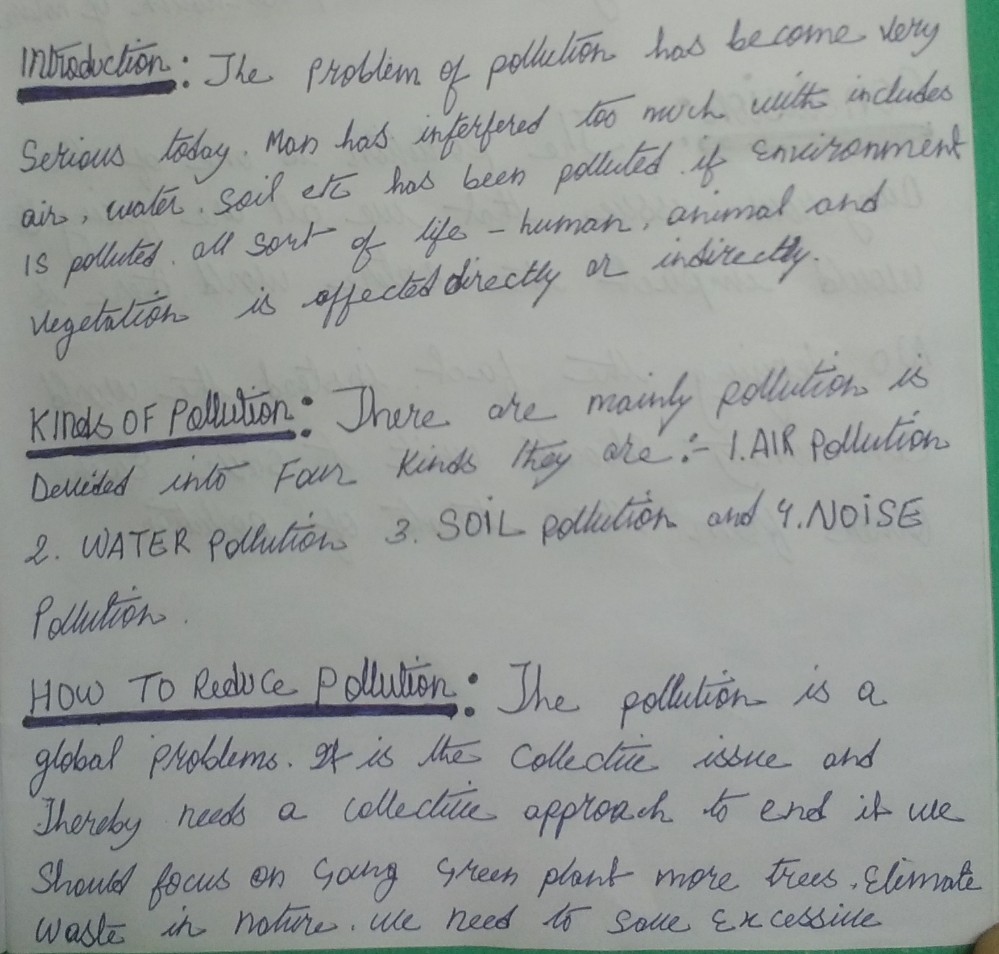 Introduction: The problem of pollution has become very
Serious today. Man has inferfered too much with includes
air, water, soil etc has been polluted. if environment
is polluted. all sort of life - human, animal and
vegetation is affected directly or indirectly.
Kinds OF Pollution: There are mainly pollution is
Devided into Four Kinds they are :- 1. AIR Pollution
2. WATER Pollution 3. SOIL pollution and 4. NOISE
Pollution.
HOW TO Reduce Pollution: The pollution is a
global problems. It is the collective issue and
Thereby needs a collective approach to end it we
Should focus on Going Green plant more trees. Elimate
waste in nature. we need to save Excessive